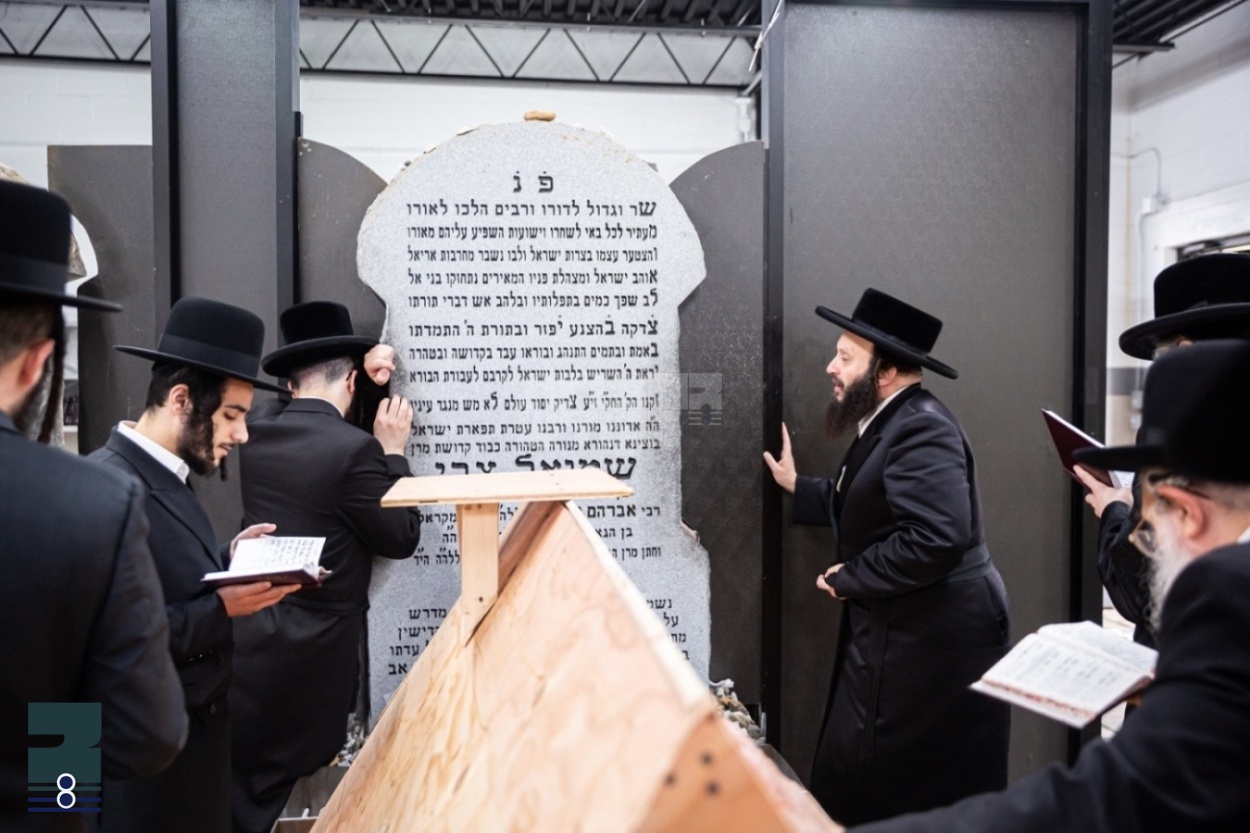 פ נ
שר וגדול לדורו ורבים הלכו לאורו
מעתיר לכל באי לשחרו וישועות השפיע עליהם מאורו
והצטער עצמו בצרות ישראל ולבו נשבר מחרבות אריאל
אוהב ישראל ומצהלת פניו המאירים נתחזקו בני אל
לב שפך כמים בתפלותיו ובלהב אש דברי תורתו
צדקה בהצנע יפזר ובתורת ה' התמדתו
באמת ובתמים התנהג ובוראו עבד בקדושה ובטהרה
יראת ה' השריש בלבות ישראל לקרבם לעבודת הבורא
זקנו הק' החק"י זי"ע צדיק יסוד עולם לא מש מנגד עיניו
ה"ה אדוננו מורנו ורבנו עטרת תפארת ישראל
בוצינא דנהורא מנורה הטהורה כבוד קדושת מרן
שמואל צבי
רבי אברהם מקראל
בן הגא
וחתן מרן ללה"ה הי"ד
נשמ מדרש
על קדישין
עדתו
אב
8